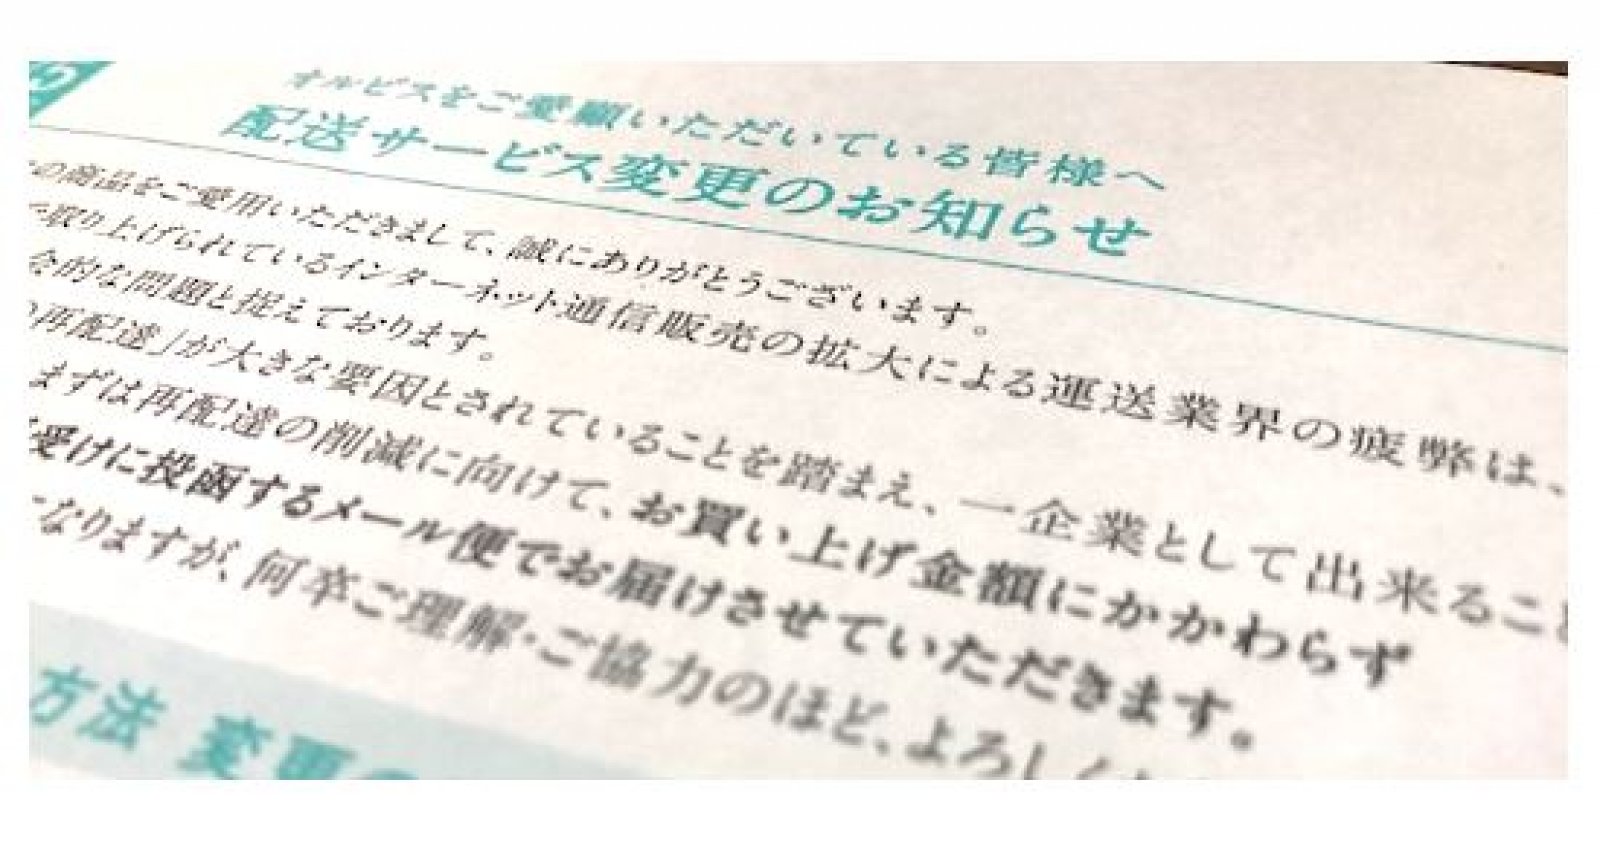 オルビスをご愛顧いただいている皆様へ
配送サービス変更のお知らせ
の商品をご愛用いただきまして、誠にありがとうございます。
で取り上げられているインターネット通信販売の拡大による運送業界の疲弊は、
会的な問題と捉えております。
再配達」が大きな要因とされていることを踏まえ、一企業として出来るこ
まずは再配達の削減に向けて、お買い上げ金額にかかわらず
受けに投函するメール便でお届けさせていただきます。
なりますが、何卒ご理解・ご協力のほど、よろしく
方法 変更の